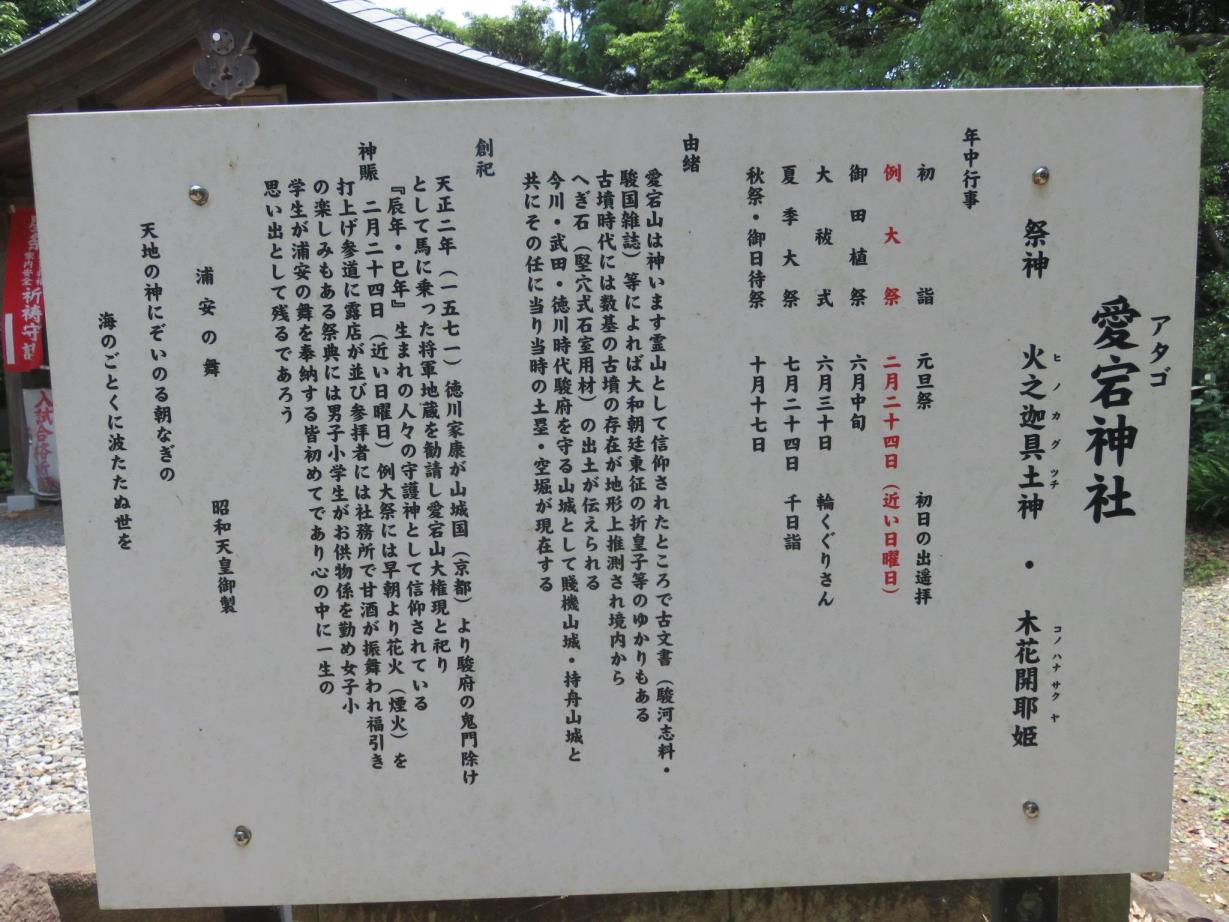 アタゴ
愛宕神社
祭神 火之迦具土神 ・ 木花開耶姫
ヒノカグツチ
コノハナサクヤ
年中行事
初詣 元旦祭 初日の出遥拝
例大祭 二月二十四日（近い日曜日）
御田植祭 六月中旬
大祓式 六月三十日 輪くぐりさん
夏季大祭 七月二十四日 千日詣
秋祭・御日待祭 十月十七日
由緒
愛宕山は神います霊山として信仰されたところで古文書（駿河志料・
駿国雑誌）等によれば大和朝廷東征の折皇子等のゆかりもある
古墳時代には数基の古墳の存在が地形上推測され境内から
へぎ石（堅穴式石室用材）の出土が伝えられる
今川・武田・徳川時代駿府を守る山城として賤機山城・持舟山城と
共にその任に当り当時の土塁・空堀が現在する
創祀
天正二年（一五七一）徳川家康が山城国（京都）より駿府の鬼門除け
として馬に乗った将軍地蔵を勧請し愛宕山大権現と祀り
『辰年・巳年』生まれの人々の守護神として信仰されている
神賑 二月二十四日（近い日曜日）例大祭には早朝より花火（煙火）を
打上げ参道に露店が並び参拝者には社務所で甘酒が振舞われ福引き
の楽しみもある祭典には男子小学生がお供物係を勤め女子小
学生が浦安の舞を奉納する皆初めてであり心の中に一生の
思い出として残るであろう
浦安の舞 昭和天皇御製
天地の神にぞいのる朝なぎの
海のごとくに波たたぬ世を
祈祷守
入試合格